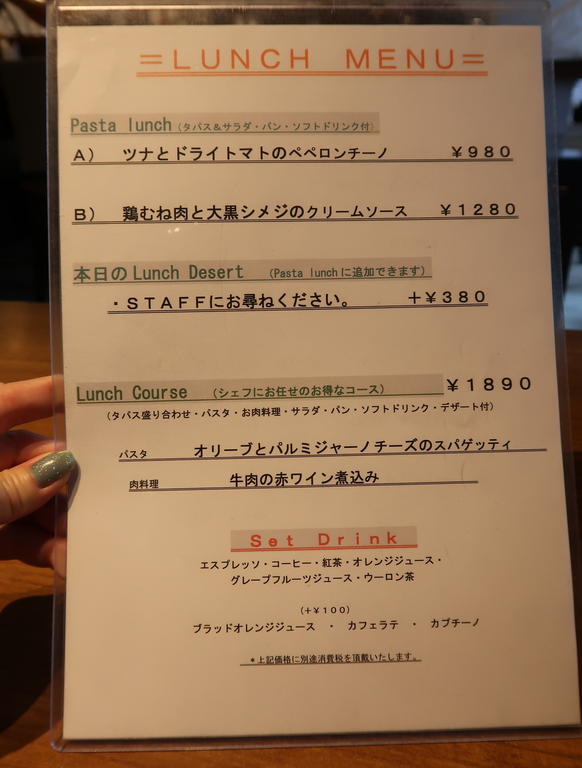 =LUNCH MENU=
Pasta lunch (タパス&サラダ・パン・ソフトドリンク付)
A) ツナとドライトマトのペペロンチーノ ¥980
B) 鶏むね肉と大黒シメジのクリームソース ¥1280
本日のLunch Desert (Pasta lunchに追加できます)
・STAFFにお尋ねください。 +¥380
Lunch Course (シェフにお任せのお得なコース) ¥1890
(タパス盛り合わせ・パスタ・お肉料理・サラダ・パン・ソフトドリンク・デザート付)
パスタ オリーブとパルミジャーノチーズのスパゲッティ
肉料理 牛肉の赤ワイン煮込み
Set Drink
エスプレッソ・コーヒー・紅茶・オレンジジュース・
グレープフルーツジュース・ウーロン茶
(+¥100)
ブラッドオレンジジュース ・ カフェラテ ・ カプチーノ
*上記価格に別途消費税を頂戴いたします。